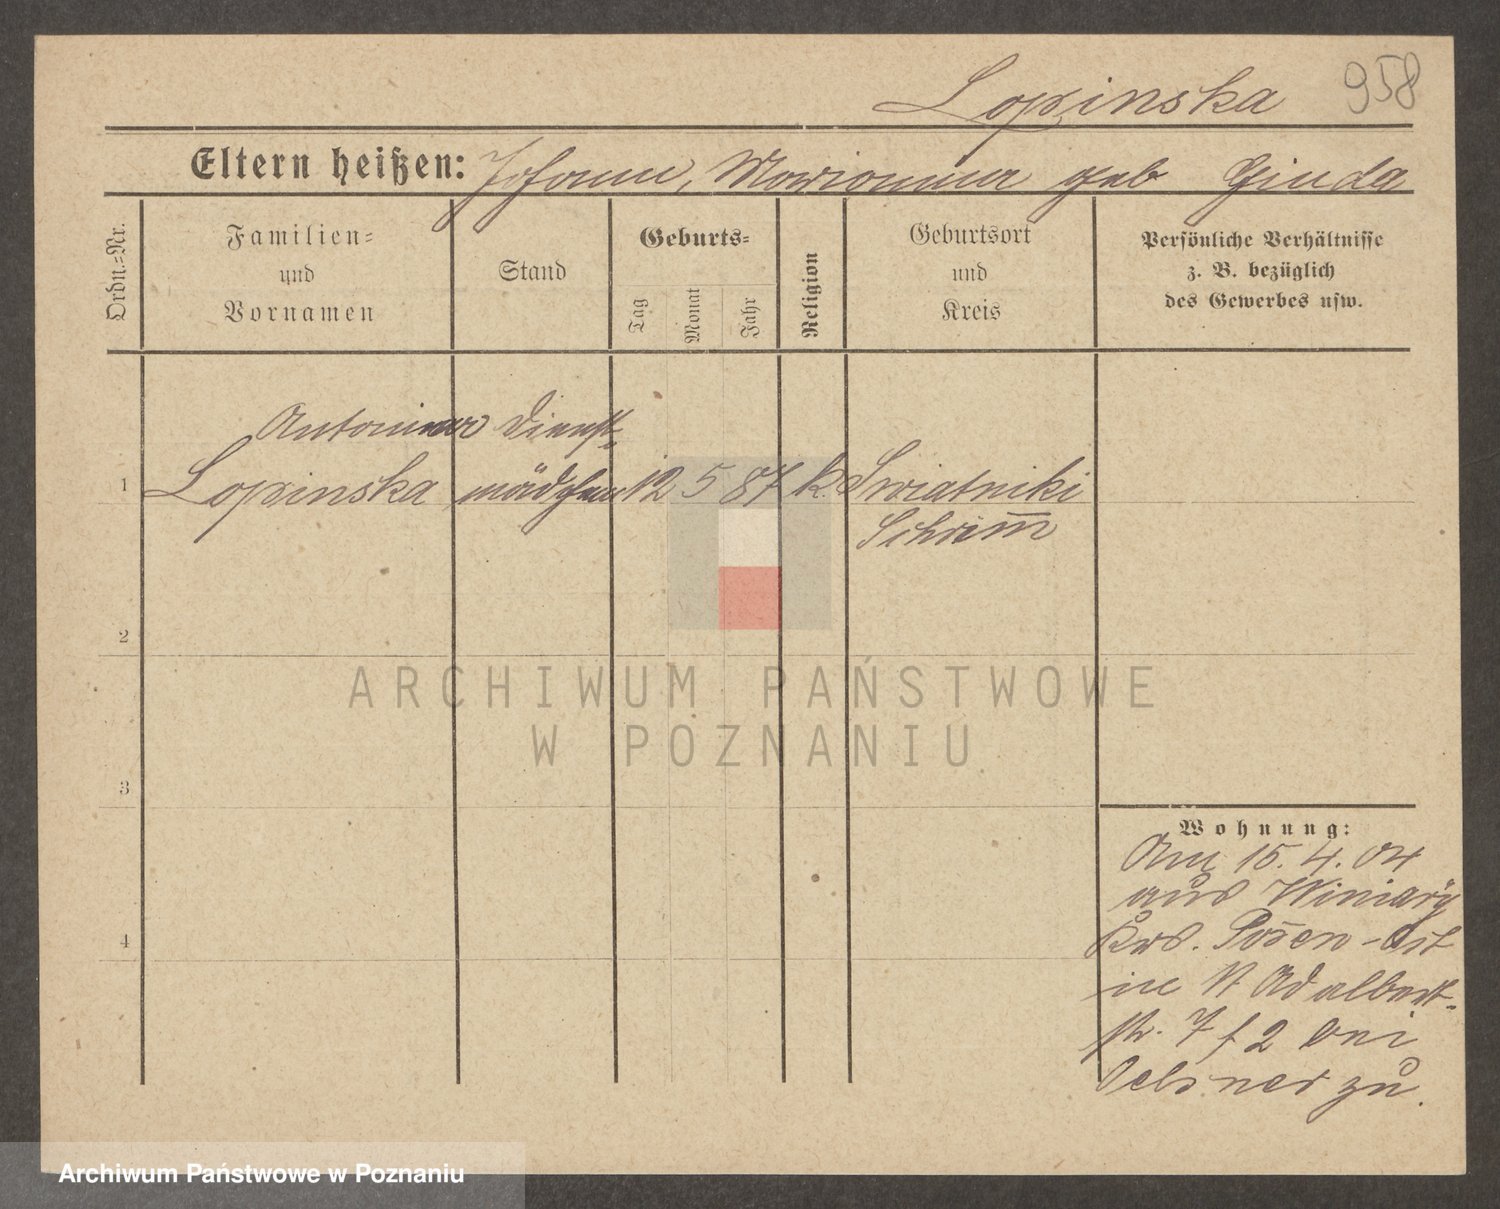 Lopinska 958
Eltern heißen: Johann, Marianna geb Ginda
Ordn.-Nr.
Familien-
und
Vornamen
Stand
Geburts-
Tag
Monat
Jahr
Religion
Geburtsort
und
Kreis
Persönliche Verhältnisse
z. B. bezüglich
des Gewerbes usw.
Antonina Dienst-
1 Lopinska mädchen 12 5 87 k. Swiatniki
Schrimm
2
3
4
Wohnung:
Am 15. 4. 04
aus Winiary
Krs. Posen-Ost
in St Adalbert-
str. 7 f 2 bei
Oelsner zu.
ARCHIWUM PAŃSTWOWE
W POZNANIU
Archiwum Państwowe w Poznaniu